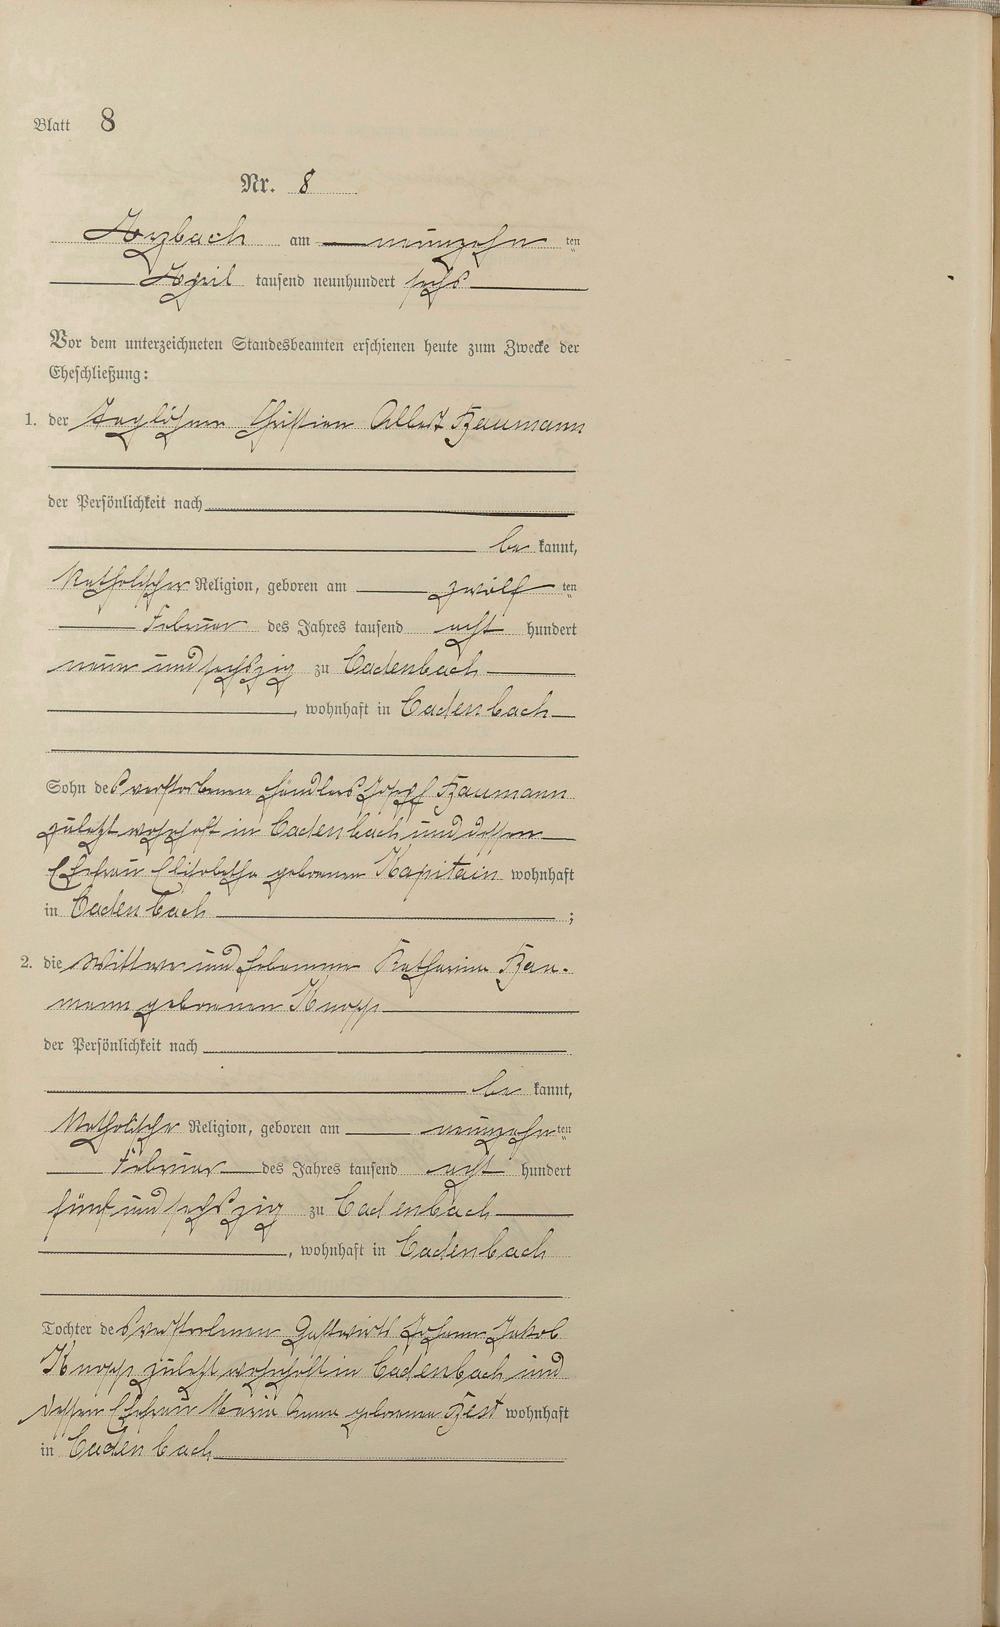 Blatt 8
Nr. 8
Arzbach am neunzehn ten
April tausend neunhundert sechs
Vor dem unterzeichneten Standesbeamten erschienen heute zum Zwecke der
Eheschließung:
1. der Taglöhner Christian Albert Baumann
der Persönlichkeit nach
be kannt,
katholischer Religion, geboren am zwölf ten
Februar des Jahres tausend acht hundert
neun und sechszig zu Cadenbach
, wohnhaft in Cadenbach
Sohn des verstorbenen Händlers Josef Baumann
zuletzt wohnhaft in Cadenbach und dessen
Ehefrau Elisabetha geborenen Kapitain wohnhaft
in Cadenbach ;
2. die Wittwe und Hebamme Katharina Bau-
mann geborenen Knopp
der Persönlichkeit nach
be kannt,
katholischer Religion, geboren am neunzehn ten
Februar des Jahres tausend acht hundert
fünf und sechszig zu Cadenbach
, wohnhaft in Cadenbach
Tochter des verstorbenen Gastwirts Johann Jakob
Knopp zuletzt wohnhaft in Cadenbach und
dessen Ehefrau Maria Anna geborenen Best wohnhaft
in Cadenbach